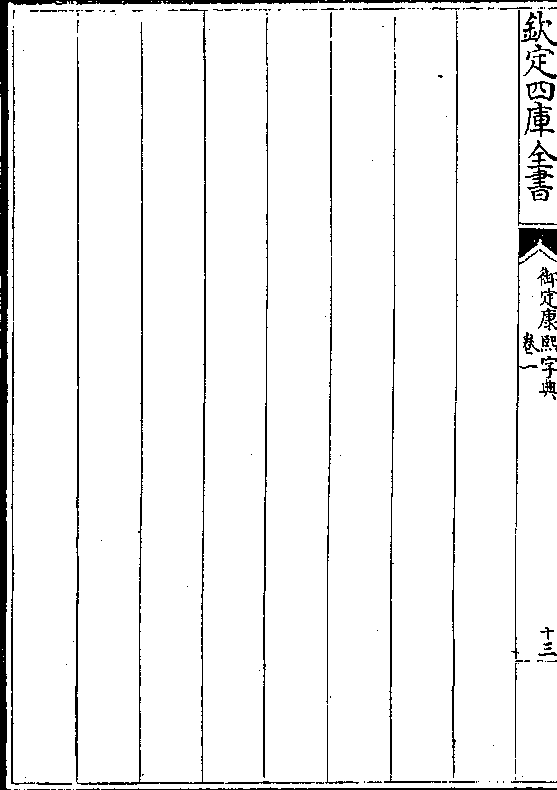 欽定四庫全書
御定康熙字典
卷一
十三